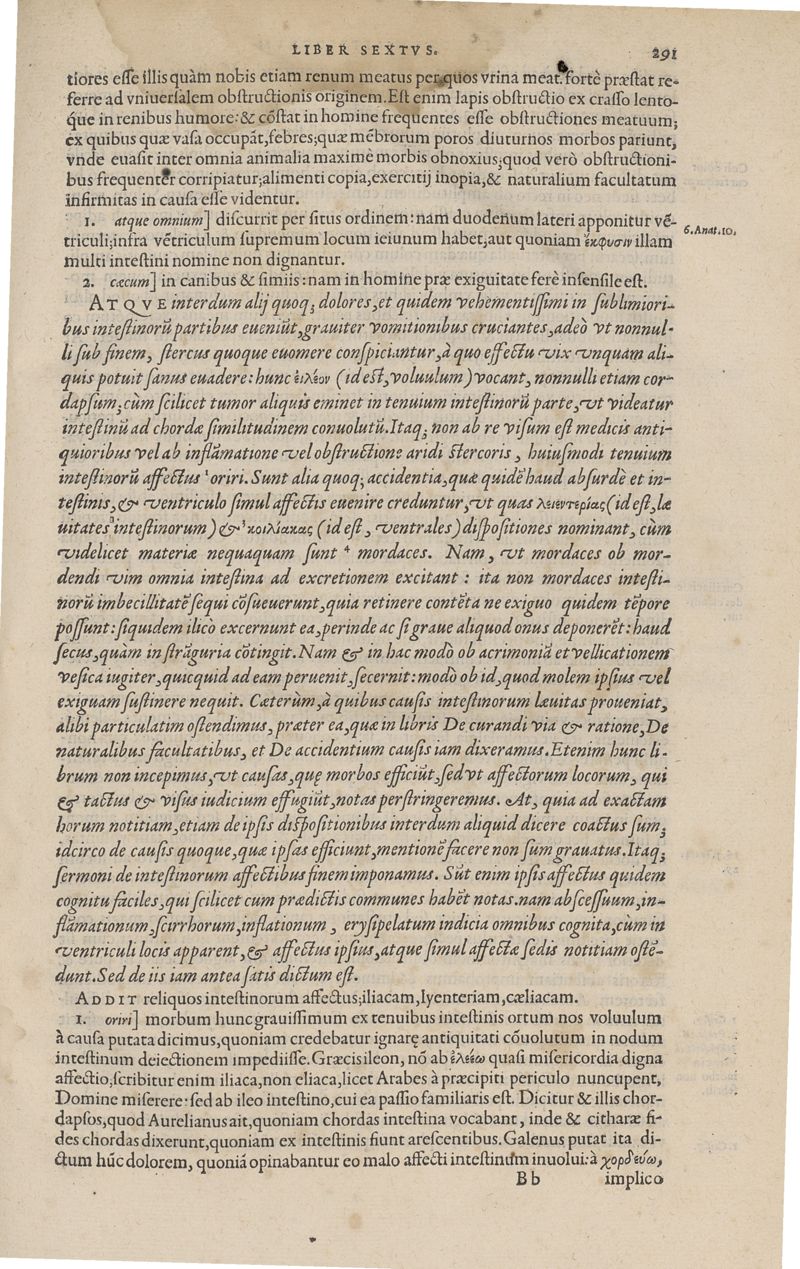 LIBER SEXTVS.
291
tiores esse illis quàm nobis etiam renum meatus per quos vrina meat. fortè præstat re-
ferre ad vniuersalem obstructionis originem. Est enim lapis obstructio ex crasso lento-
q́ue in renibus humore: & cõstat in homine frequentes esse obstructiones meatuum;
ex quibus quæ vasa occupãt, febres; quæ mẽbrorum poros diuturnos morbos pariunt,
vnde euasit inter omnia animalia maximè morbis obnoxius; quod verò obstructioni-
bus frequenter corripiatur; alimenti copia, exercitij inopia, & naturalium facultatum
infirmitas in causa esse videntur.
1. atque omnium] discurrit per situs ordinem: nam duodenum lateri apponitur vẽ-
triculi; infra vẽtriculum supremum locum ieiunum habet, aut quoniam ἔκφυσιν illam
6. Anat. 10.
multi intestini nomine non dignantur.
2. cæcum] in canibus & simiis: nam in homine præ exiguitate ferè insensile est.
ATQVE interdum alij quoq; dolores, et quidem vehementissimi in sublimiori-
bus intestinorũ partibus eueniũt, grauiter vomitionibus cruciantes, adeò vt nonnul-
li sub finem, stercus quoque euomere conspiciantur, à quo effectu vix vnquam ali-
quis potuit sanus euadere: hunc εἰλέον (id est, voluulum) vocant, nonnulli etiam cor-
dapsum; cùm scilicet tumor aliquis eminet in tenuium intestinorũ parte, vt videatur
intestinũ ad chordæ similitudinem conuolutũ. Itaq; non ab re visum est medicis anti-
quioribus vel ab inflãmatione vel obstructione aridi stercoris, huiusmodi tenuium
intestinorũ affectus ¹oriri. Sunt alia quoq; accidentia, quæ quidẽ haud absurdè et in-
testinis, & ventriculo simul affectis euenire creduntur, vt quas λειεντερίας (id est, læ
uitates ²intestinorum) & ³κοιλίακας (id est, ventrales) dispositiones nominant, cùm
videlicet materiæ nequaquam sunt ⁴ mordaces. Nam, vt mordaces ob mor-
dendi vim omnia intestina ad excretionem excitant: ita non mordaces intesti-
norũ imbecillitatẽ sequi cõsueuerunt, quia retinere contẽta ne exiguo quidem tẽpore
possunt: siquidem ilicò excernunt ea, perinde ac si graue aliquod onus deponerẽt: haud
secus, quàm in strãguria cõtingit. Nam & in hac modò ob acrimoniã et vellicationem
vesica iugiter, quicquid ad eam peruenit, secernit: modò ob id, quod molem ipsius vel
exiguam sustinere nequit. Cæterùm, à quibus causis intestinorum læuitas proueniat,
alibi particulatim ostendimus, præter ea, quæ in libris De curandi via & ratione, De
naturalibus facultatibus, et De accidentium causis iam dixeramus. Etenim hunc li-
brum non incepimus, vt causas, quę morbos efficiũt, sed vt affectorum locorum, qui
& tactus & visus iudicium effugiũt, notas perstringeremus. At, quia ad exactam
horum notitiam, etiam de ipsis dispositionibus interdum aliquid dicere coactus sum;
idcirco de causis quoque, quæ ipsas efficiunt, mentionẽ facere non sum grauatus. Itaq;
sermoni de intestinorum affectibus finem imponamus. Sũt enim ipsis affectus quidem
cognitu faciles, qui scilicet cum prædictis communes habẽt notas. nam abscessuum, in-
flãmationum, scirrhorum, inflationum, erysipelatum indicia omnibus cognita, cùm in
ventriculi locis apparent, & affectus ipsius, atque simul affectæ sedis notitiam ostẽ-
dunt. Sed de iis iam antea satis dictum est.
ADDIT reliquos intestinorum affectus; iliacam, lyenteriam, cæliacam.
1. oriri] morbum hunc grauissimum ex tenuibus intestinis ortum nos voluulum
à causa putata dicimus, quoniam credebatur ignarę antiquitati cõuolutum in nodum
intestinum deiectionem impediisse. Græcis ileon, nõ ab ἐλεέω quasi misericordia digna
affectio; scribitur enim iliaca, non eliaca, licet Arabes à præcipiti periculo nuncupent,
Domine miserere: sed ab ileo intestino, cui ea passio familiaris est. Dicitur & illis chor-
dapsos, quod Aurelianus ait, quoniam chordas intestina vocabant, inde & citharæ fi-
des chordas dixerunt, quoniam ex intestinis fiunt arescentibus. Galenus putat ita di-
ctum hũc dolorem, quoniã opinabantur eo malo affecti intestinum inuolui: à χορδεύω,
B b
implico